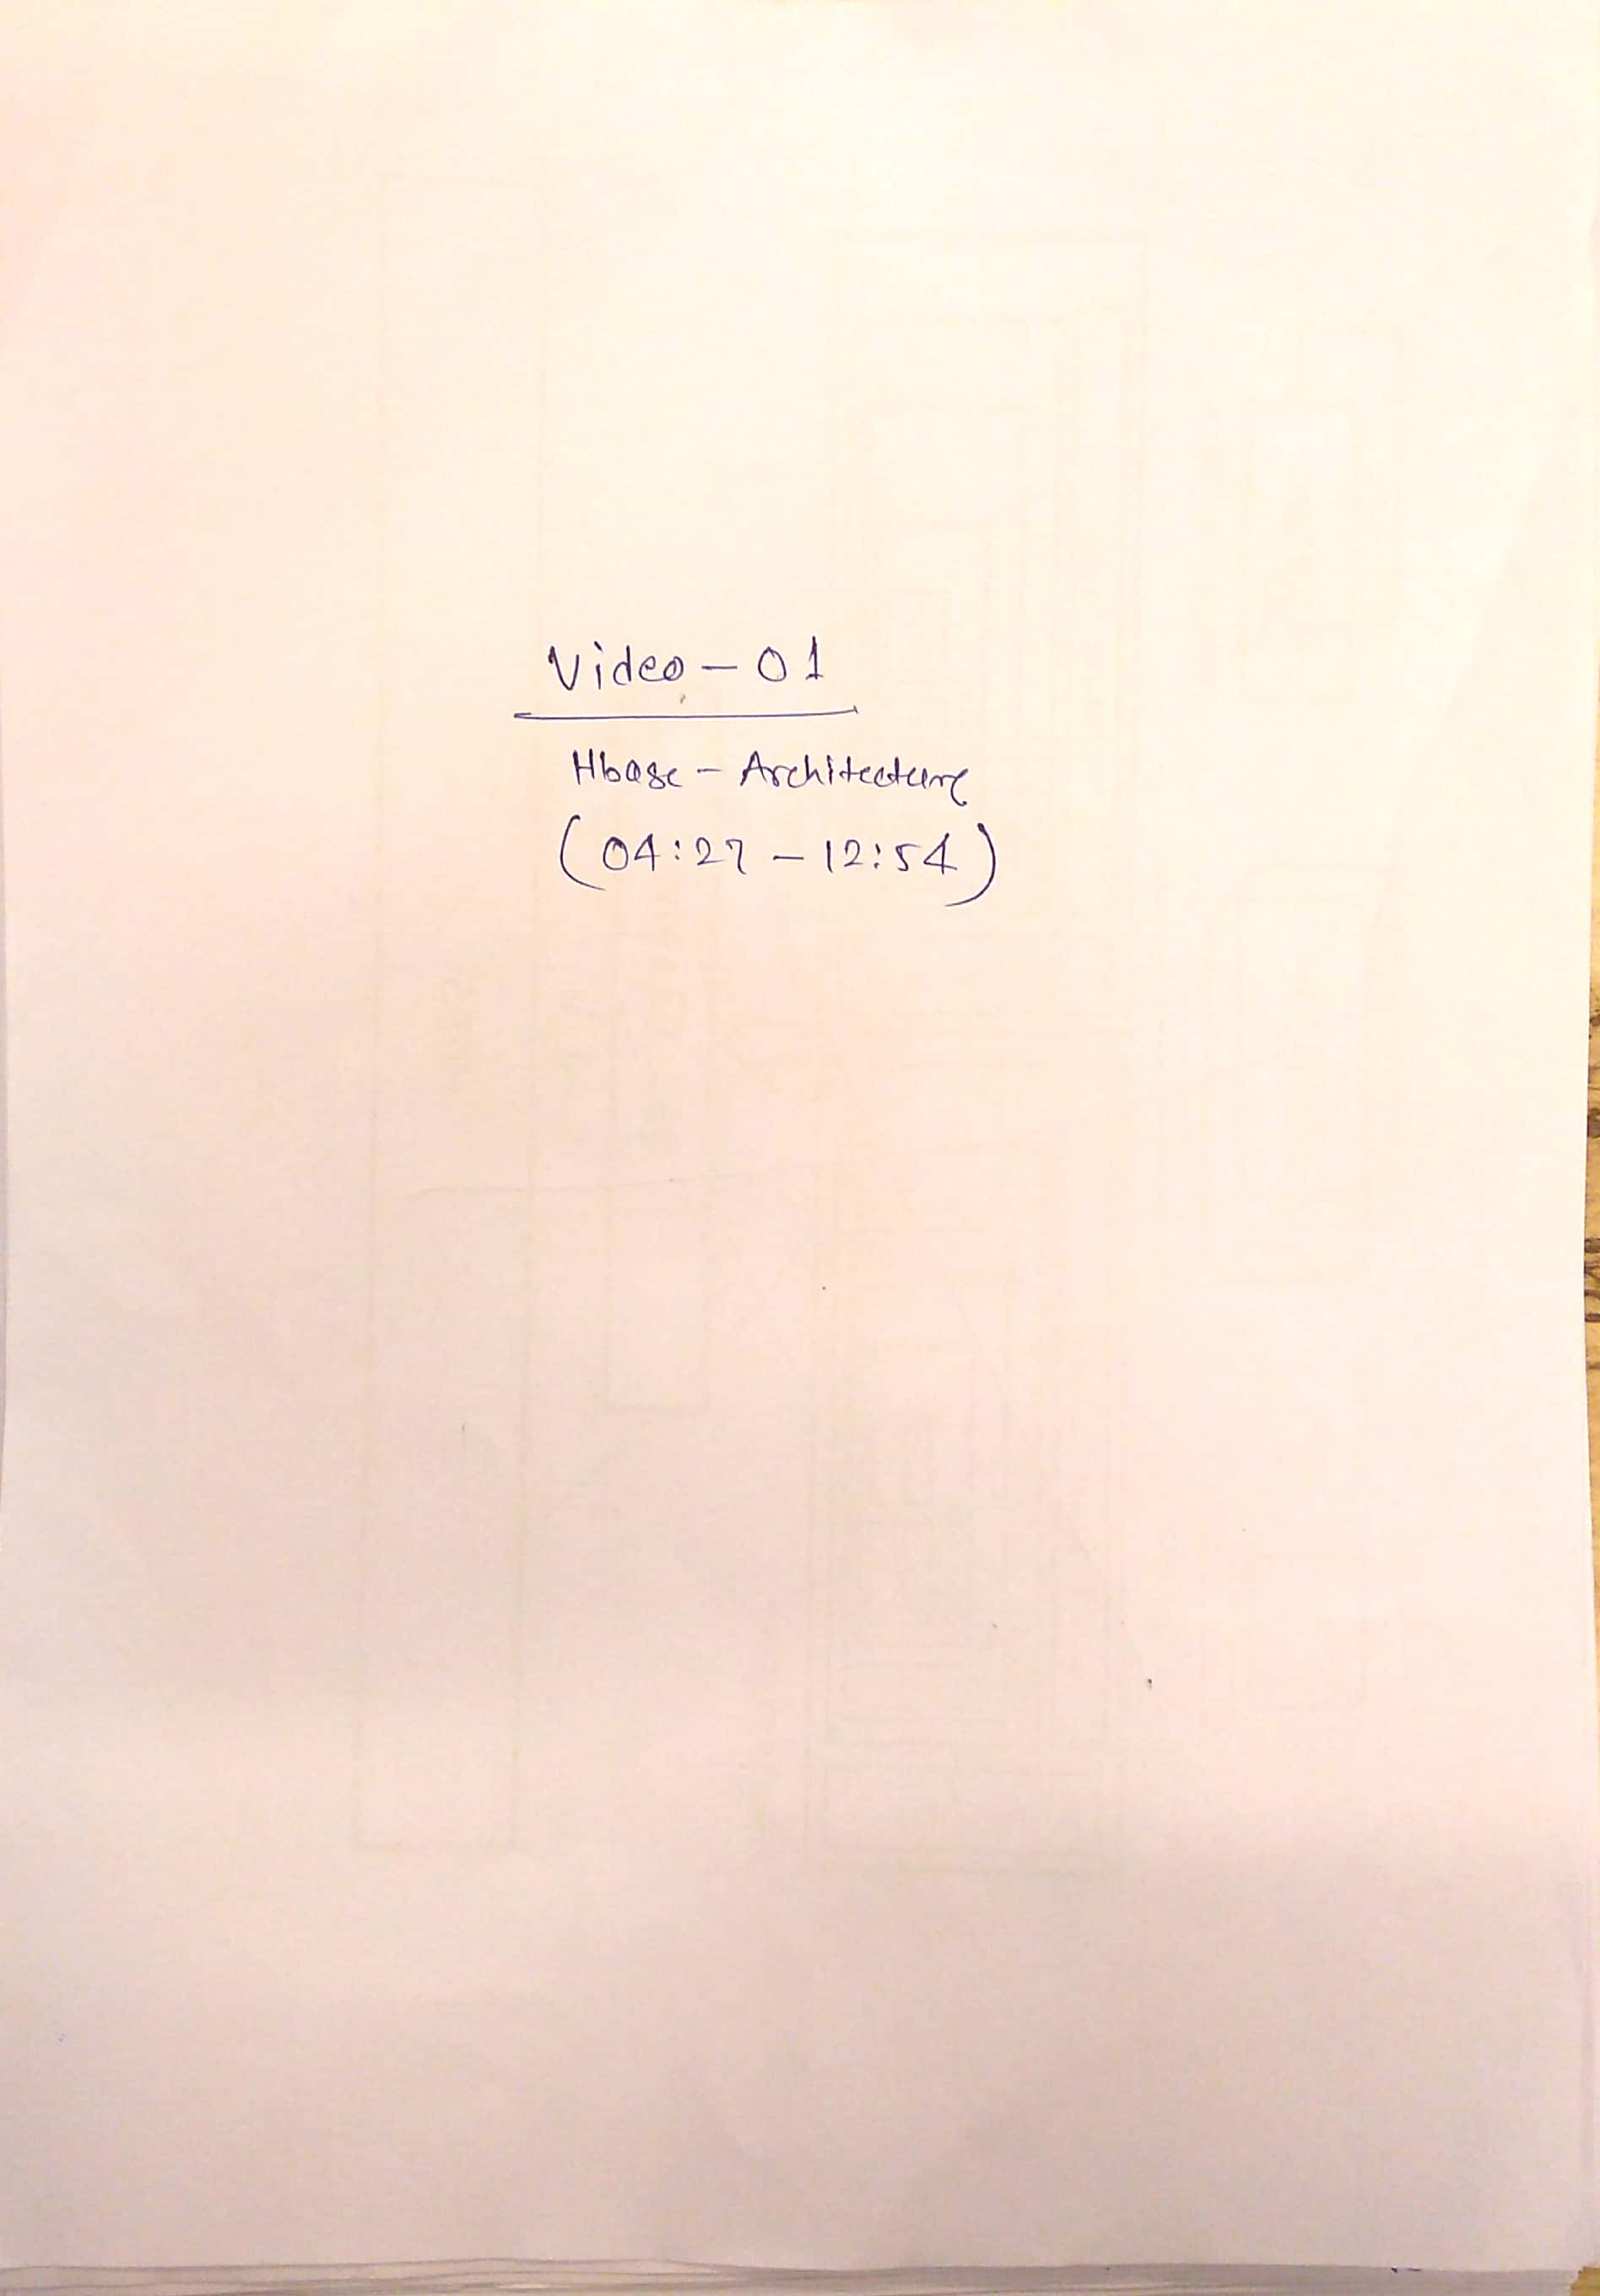 Video - 01
Hbase - Architecture
(04:27 - 12:54)